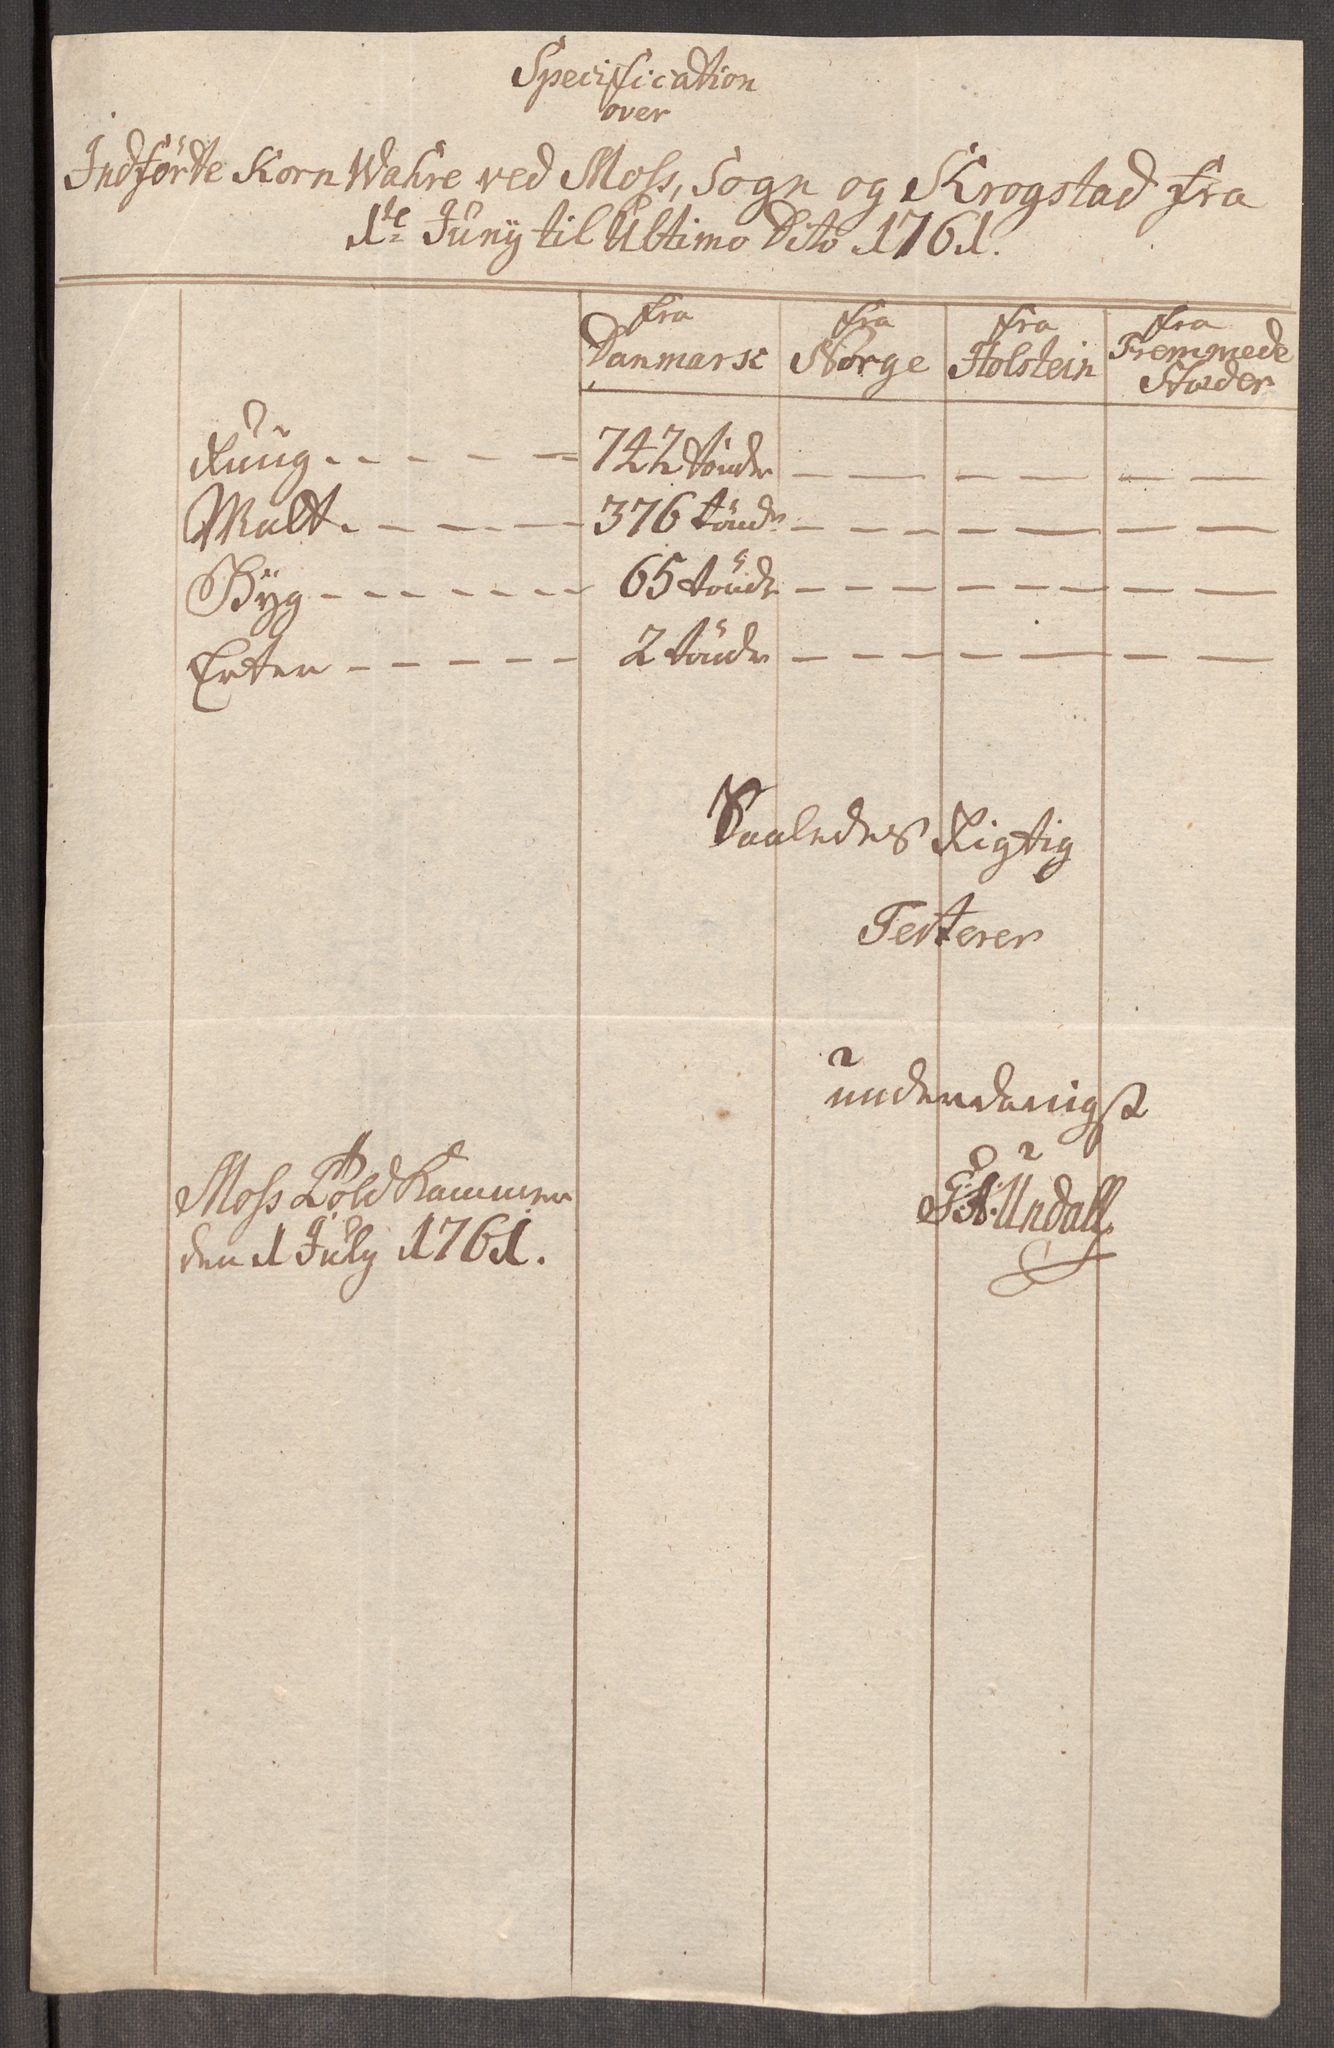 Specification
over
Indförte Korn Wahre ved Moss, Sogn og Krogstad fra
1te Juny til Ultimo Dito 1761.
fra Danmark fra Norge fra Holstein fra Fremmede Stæder
Rug 742 tönder — — — — — —
Malt 376 tönder — — — — — —
Byg 65 tönder — — — — — —
Erter 2 tönder — — — — — —
Saaledes Rigtig
Testerer
underdanigst
Moss Told Kammer
den 1 July 1761.
Undall